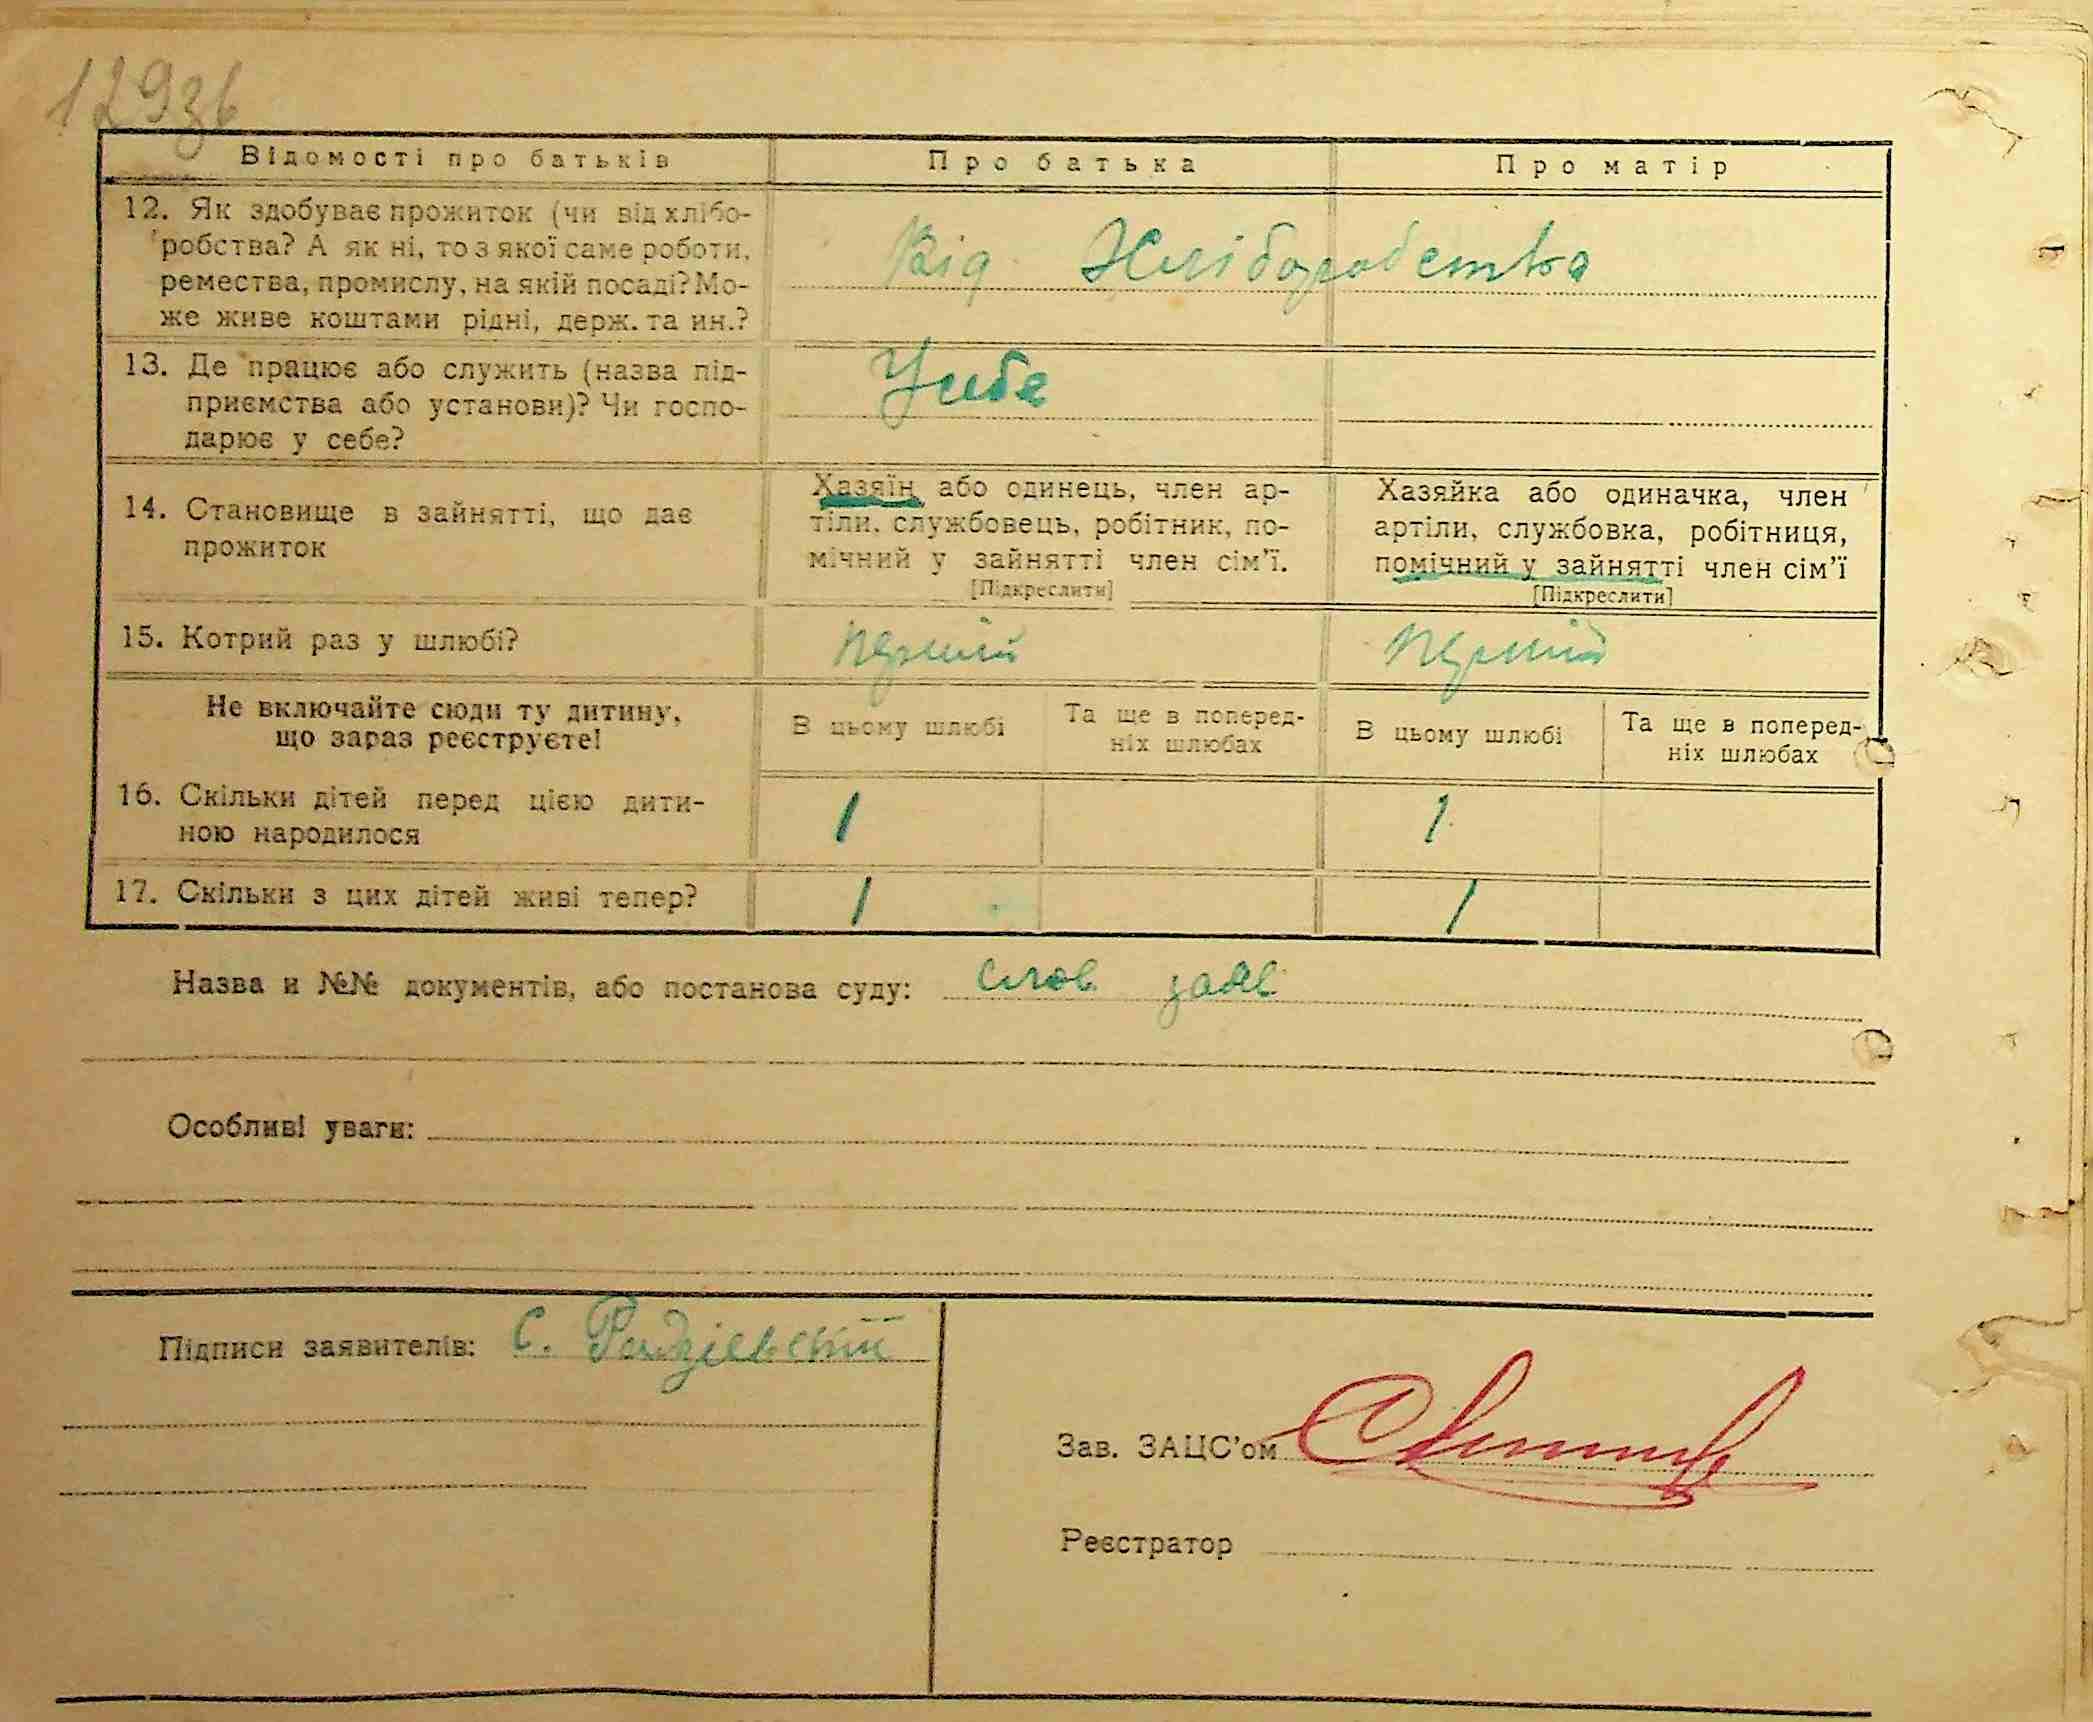 129зв
Відомості про батьків Про батька Про матір
12. Як здобуває прожиток (чи від хлібо-
робства? А як ні, то з якої саме роботи,
ремества, промислу, на якій посаді? Мо-
же живе коштами рідні, держ. та ин.?
Від Хліборобства
13. Де працює або служить (назва під-
приємства або установи)? Чи госпо-
дарює у себе?
Усебе
14. Становище в зайнятті, що дає
прожиток
Хазяїн або одинець, член ар-
тіли, службовець, робітник, по-
мічний у зайнятті член сім'ї.
[Підкреслити]
Хазяйка або одиначка, член
артіли, службовка, робітниця,
помічний у зайнятті член сім'ї
[Підкреслити]
15. Котрий раз у шлюбі? перший перший
Не включайте сюди ту дитину,
що зараз реєструєте!
В цьому шлюбі
Та ще в поперед-
ніх шлюбах
В цьому шлюбі
Та ще в поперед-
ніх шлюбах
16. Скільки дітей перед цією дити-
ною народилося
1 1
17. Скільки з цих дітей живі тепер? 1 1
Назва и №№ документів, або постанова суду: слов. заяв
Особливі уваги:
Підписи заявителів: С. Радзієвский
Зав. ЗАЦС'ом
Реєстратор